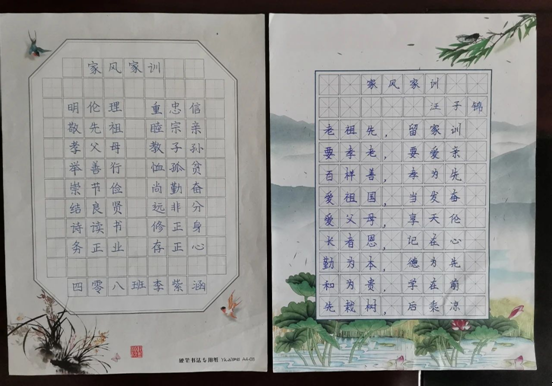 家风家训
明伦理 重忠信
敬先祖 睦宗亲
孝父母 教子孙
举善行 恤孤贫
崇节俭 尚勤奋
结良贤 远非分
诗读书 修正身
务正业 存正心
四零八班李紫涵
家风家训
汪子锦
老祖先，留家训
要孝老，要爱亲
百祥善，孝为先
爱祖国，当发奋
爱父母，享天伦
长者恩，记在心
勤为本，德为先
和为贵，学在前
先栽树，后乘凉